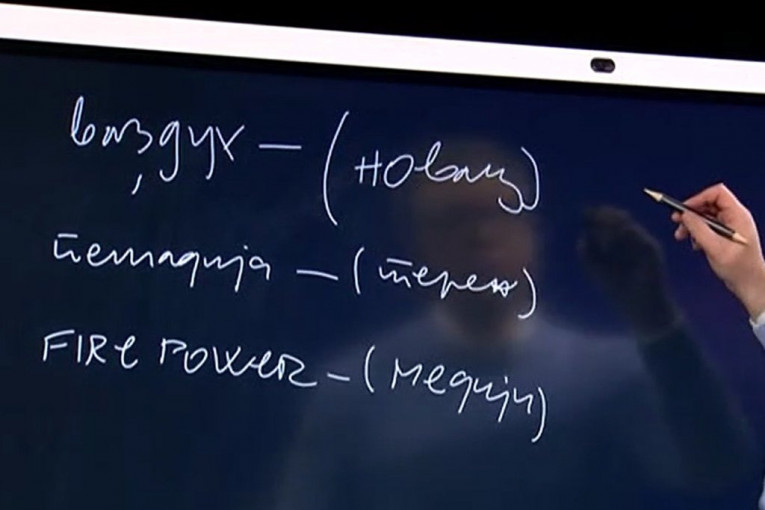 ваздух – (новац)
пешадија – (терен)
FIRE POWER – (медији)